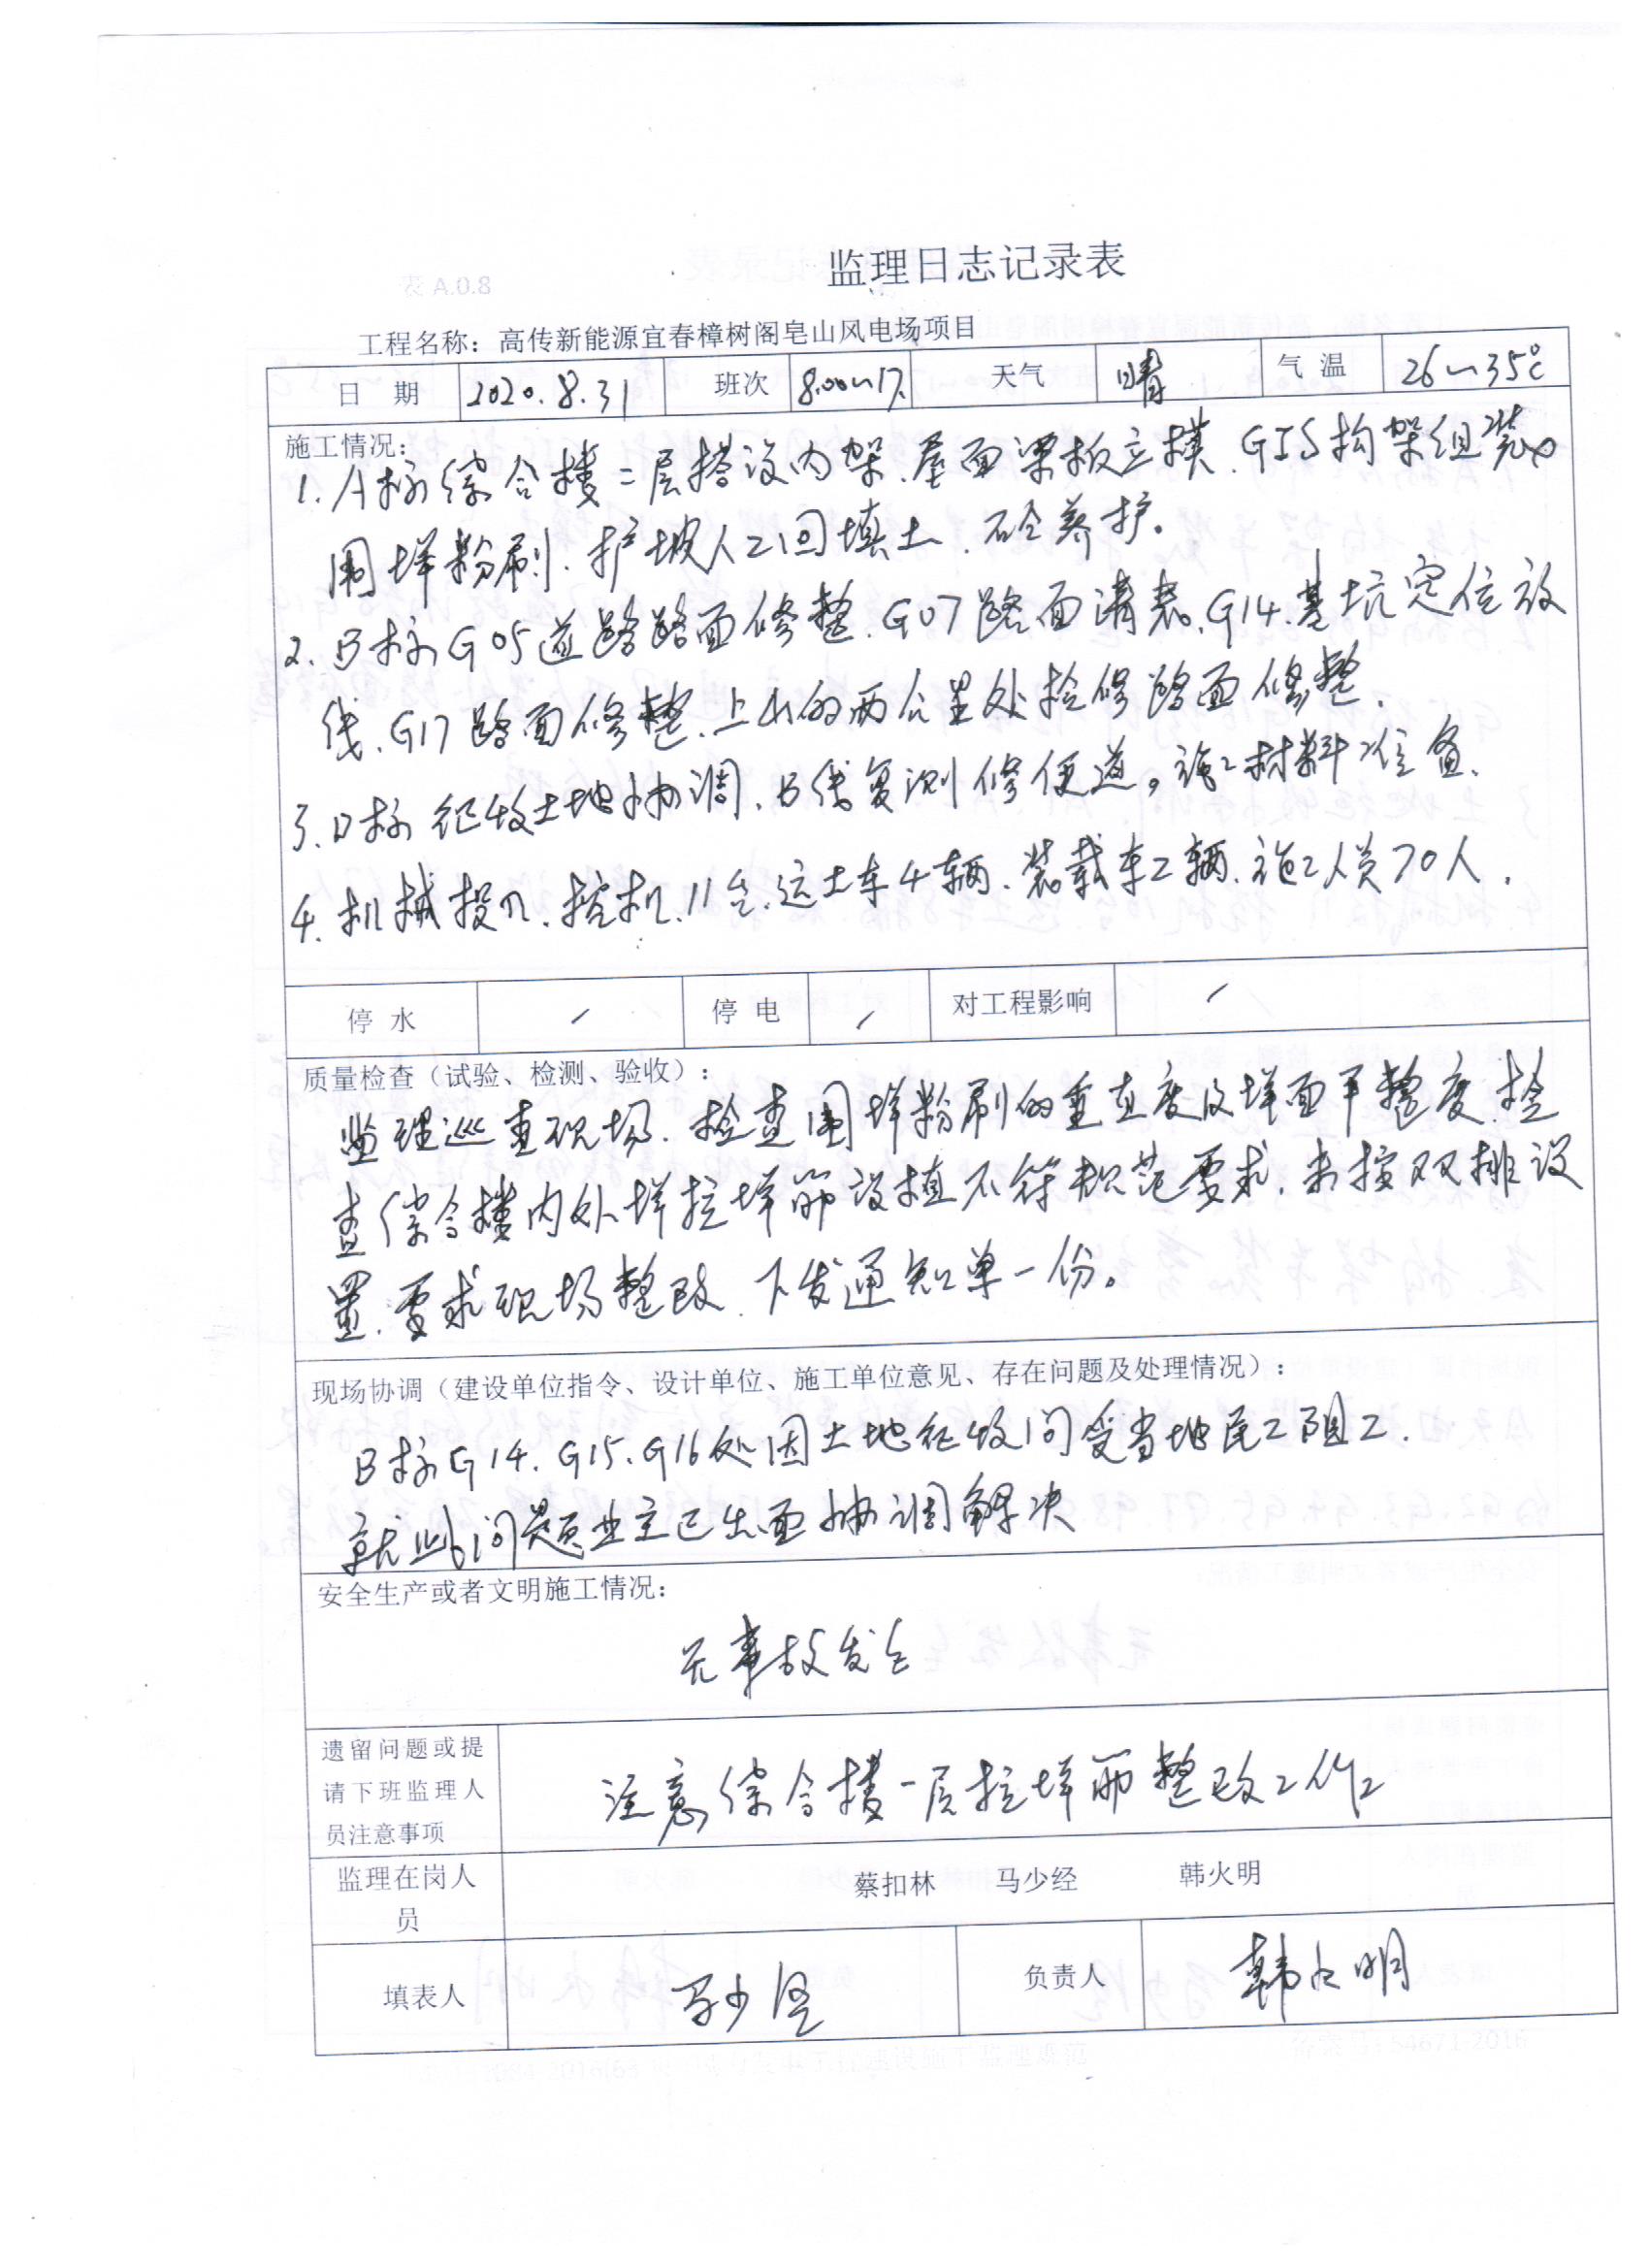 监理日志记录表
工程名称：高传新能源宜春樟树阁皂山风电场项目
日 期 2020.8.31 班次 8.00～17. 天气 晴 气 温 26～35℃
施工情况：
1. A标综合楼二层搭设内架、屋面梁板立模、GIS构架组装
围垟粉刷、护坡人工回填土、砼养护。
2. B标G05道路路面修整、G07路面清表、G14.基坑定位放
线、G17路面修整、上山的两公里处抢修路面修整.
3. D标征收土地协调、B线复测修便道。施工材料准备.
4. 机械投入.挖机.11台.运土车4辆、装载车2辆.施工人员70人.
停 水 / 停 电 / 对工程影响 /
质量检查（试验、检测、验收）：
监理巡查现场.检查围垟粉刷的垂直度及垟面平整度.检
查综合楼内外垟拉垟筋设植不符规范要求.未按双排设
置.要求现场整改.下发通知单一份。
现场协调（建设单位指令、设计单位、施工单位意见、存在问题及处理情况）：
B标G14.G15、G16处因土地征收问受当地民工阻工.
就此问题业主已出面协调解决
安全生产或者文明施工情况：
无事故发生
遗留问题或提
请下班监理人
员注意事项
注意综合楼一层拉垟筋整改工作
监理在岗人
员
蔡扣林 马少经 韩火明
填表人 马少经 负责人 韩火明